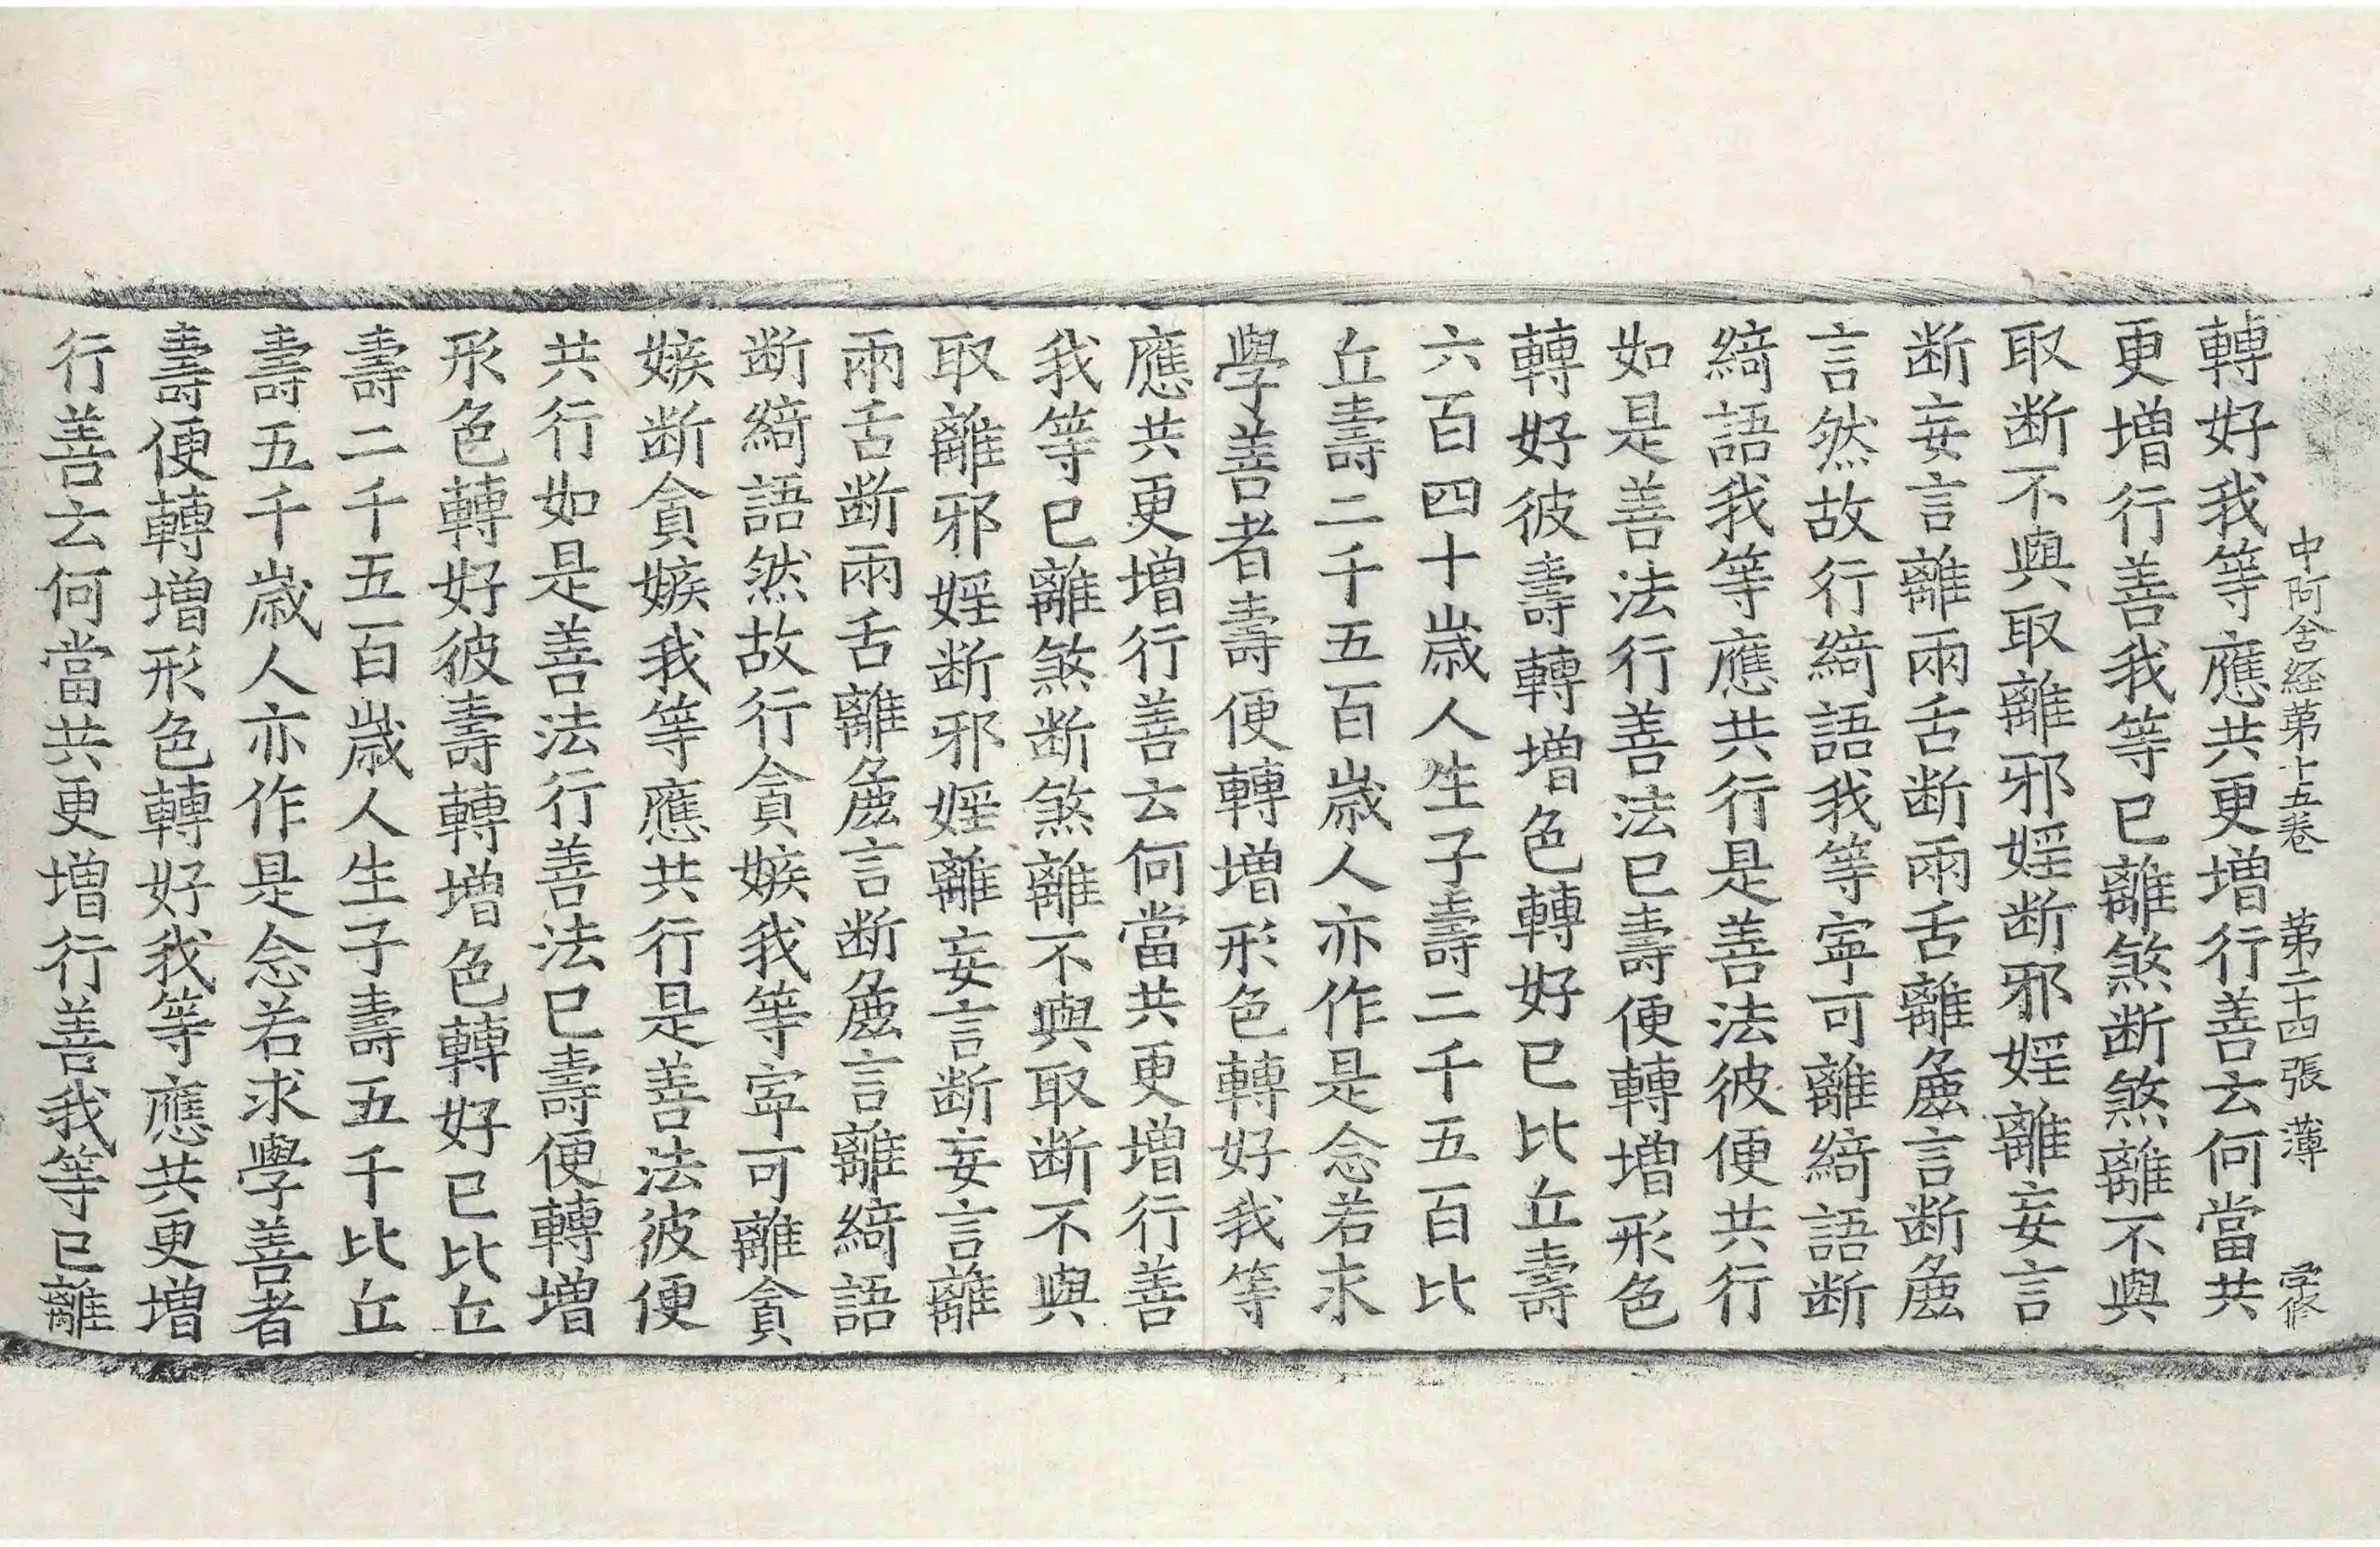 中阿含経第十五巻 第二十四張 薄 孚修
轉好我等應共更增行善云何當共
更增行善我等已離煞斷煞離不與
取断不與取離邪婬断邪婬離妄言
断妄言離兩舌断兩舌離麁言断麁
言然故行綺語我等寧可離綺語断
綺語我等應共行是善法彼便共行
如是善法行善法已壽便轉增形色
轉好彼壽轉增色轉好已比丘壽
六百四十歳人生子壽二千五百比
丘壽二千五百歳人亦作是念若求
學善者壽便轉增形色轉好我等
應共更增行善云何當共更增行善
我等已離煞断煞離不與取断不與
取離邪婬断邪婬離妄言断妄言離
兩舌断兩舌離麁言断麁言離綺語
断綺語然故行貪嫉我等寧可離貪
嫉断貪嫉我等應共行是善法彼便
共行如是善法行善法已壽便轉增
形色轉好彼壽轉增色轉好已比丘
壽二千五百歳人生子壽五千比丘
壽五千歳人亦作是念若求學善者
壽便轉增形色轉好我等應共更增
行善云何當共更增行善我等已離